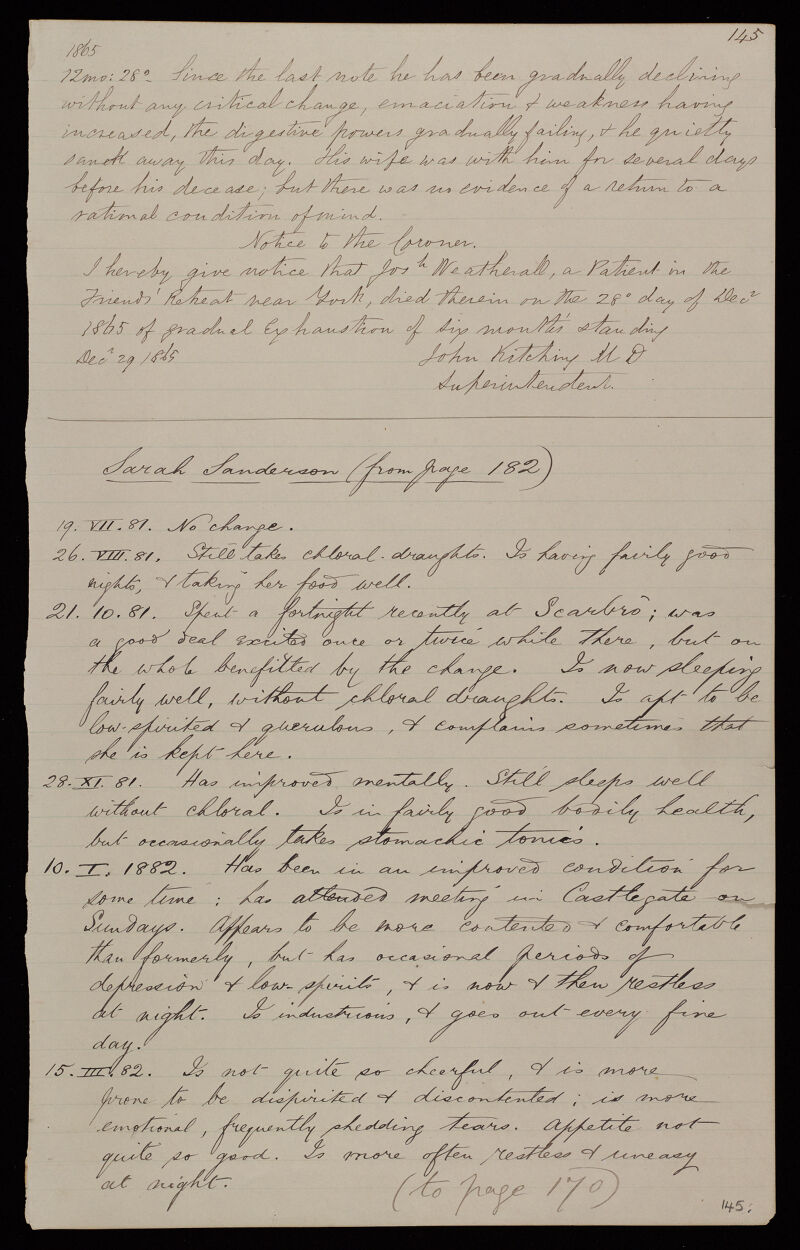 145
1865
12mo: 28º. Since the last note he has been gradually declining
without any critical change, emaciation & weakness having
increased, the digestive powers gradually failing, & he quietly
sank away this day. His wife was with him for several days
before his decease; but there was no evidence of a return to a
rational condition of mind.
Notice to the Coroner.
I hereby give notice that Josh Weatherall, a Patient in the
Friends' Retreat near York, died therein on the 28º day of Decr
1865 of gradual Exhaustion of six months' standing
Decr 29 1865 John Kitching M D
Superintendent.
Sarah Sanderson (from page 182)
19. VII. 81. No change.
26. VIII. 81. Still takes chloral-draughts. Is having fairly good
nights, & taking her food well.
21. 10. 81. Spent a fortnight recently at Scarbro; was
a good deal excited once or twice while there, but on
the whole benefitted by the change. Is now sleeping
fairly well, without chloral draughts. Is apt to be
low-spirited & querulous, & complains sometimes that
she is kept here.
28. XI. 81. Has improved mentally. Still sleeps well
without chloral. Is in fairly good bodily health,
but occasionally takes stomachic tonics.
10. I. 1882. Has been in an improved condition for
some time; has attended meeting in Castlegate on
Sundays. Appears to be more contented & comfortable
than formerly, but has occasional periods of
depression & low-spirits, & is now & then restless
at night. Is industrious, & goes out every fine
day.
15. III. 82. Is not quite so cheerful, & is more
prone to be dispirited & discontented; is more
emotional, frequently shedding tears. Appetite not
quite so good. Is more often restless & uneasy
at night. (to page 170)
145.